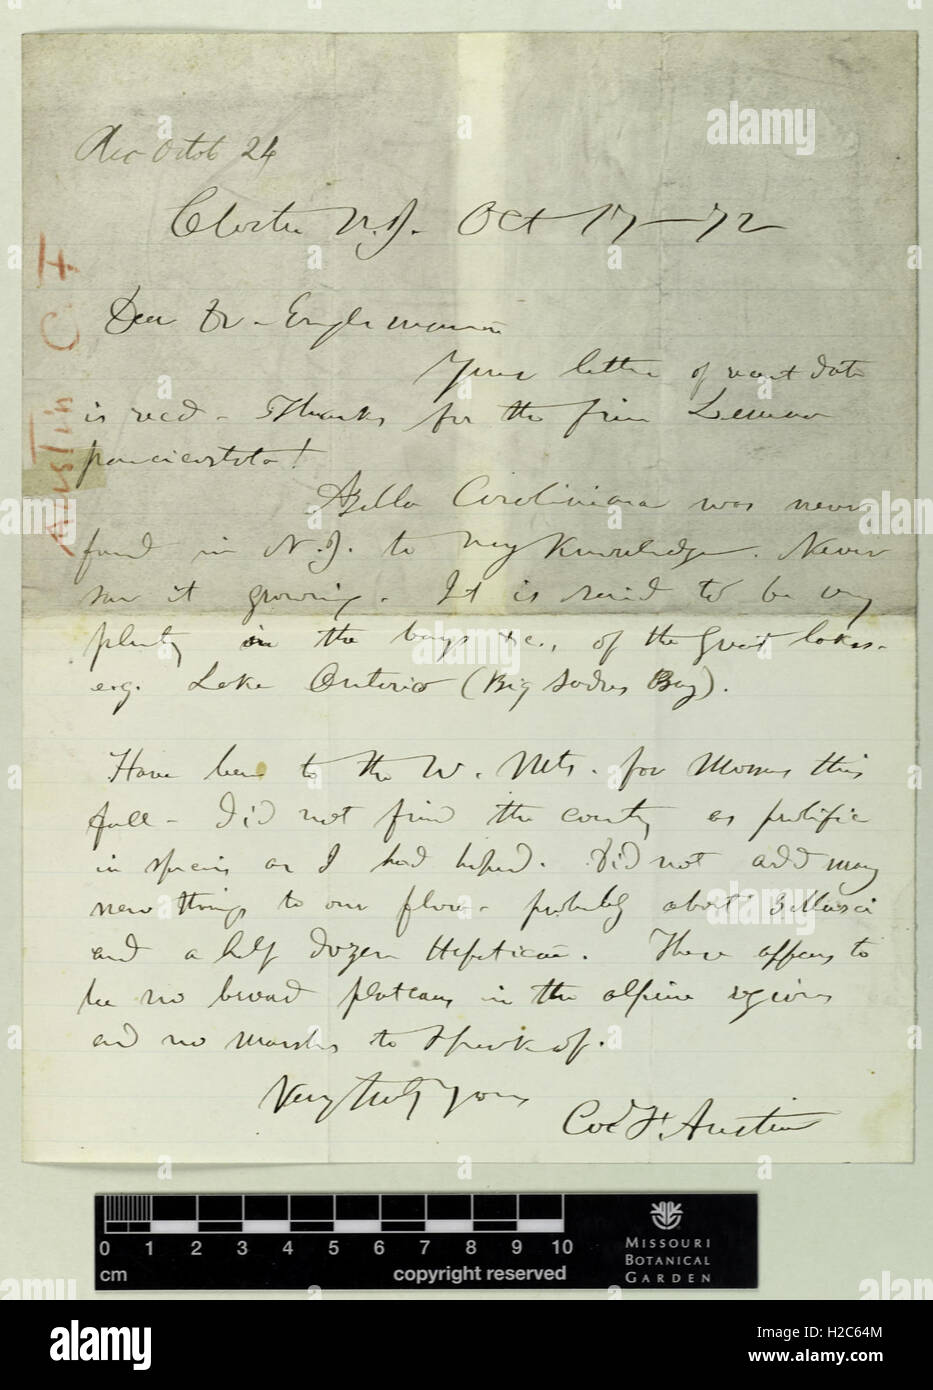 Rec Octob 24
Closter N.J. Oct 17-72
Austin C. F
Dear Dr - Engelmann
Your letter of recent date
is recd - Thanks for the fine Lemna
paucicostata!
Azolla Caroliniana was never
found in N.J. to my knowledge. Never
saw it growing. It is said to be very
plenty in the bays &c., of the Great lakes.
e.g. Lake Ontario (Big Sodus Bay).
Have been to the W. Mts. for Mosses this
fall - Did not find the country as prolific
in species as I had hoped. Did not add many
new things to our flora - probably about 3 Musci
and a half dozen Hepaticae. There appears to
be no broad plateaus in the alpine regions
and no Marshes to speak of.
Very truly yours
Coe F. Austin
0 1 2 3 4 5 6 7 8 9 10
cm
copyright reserved
MISSOURI
BOTANICAL
GARDEN
alamy
alamy
H2C64M
www.alamy.com